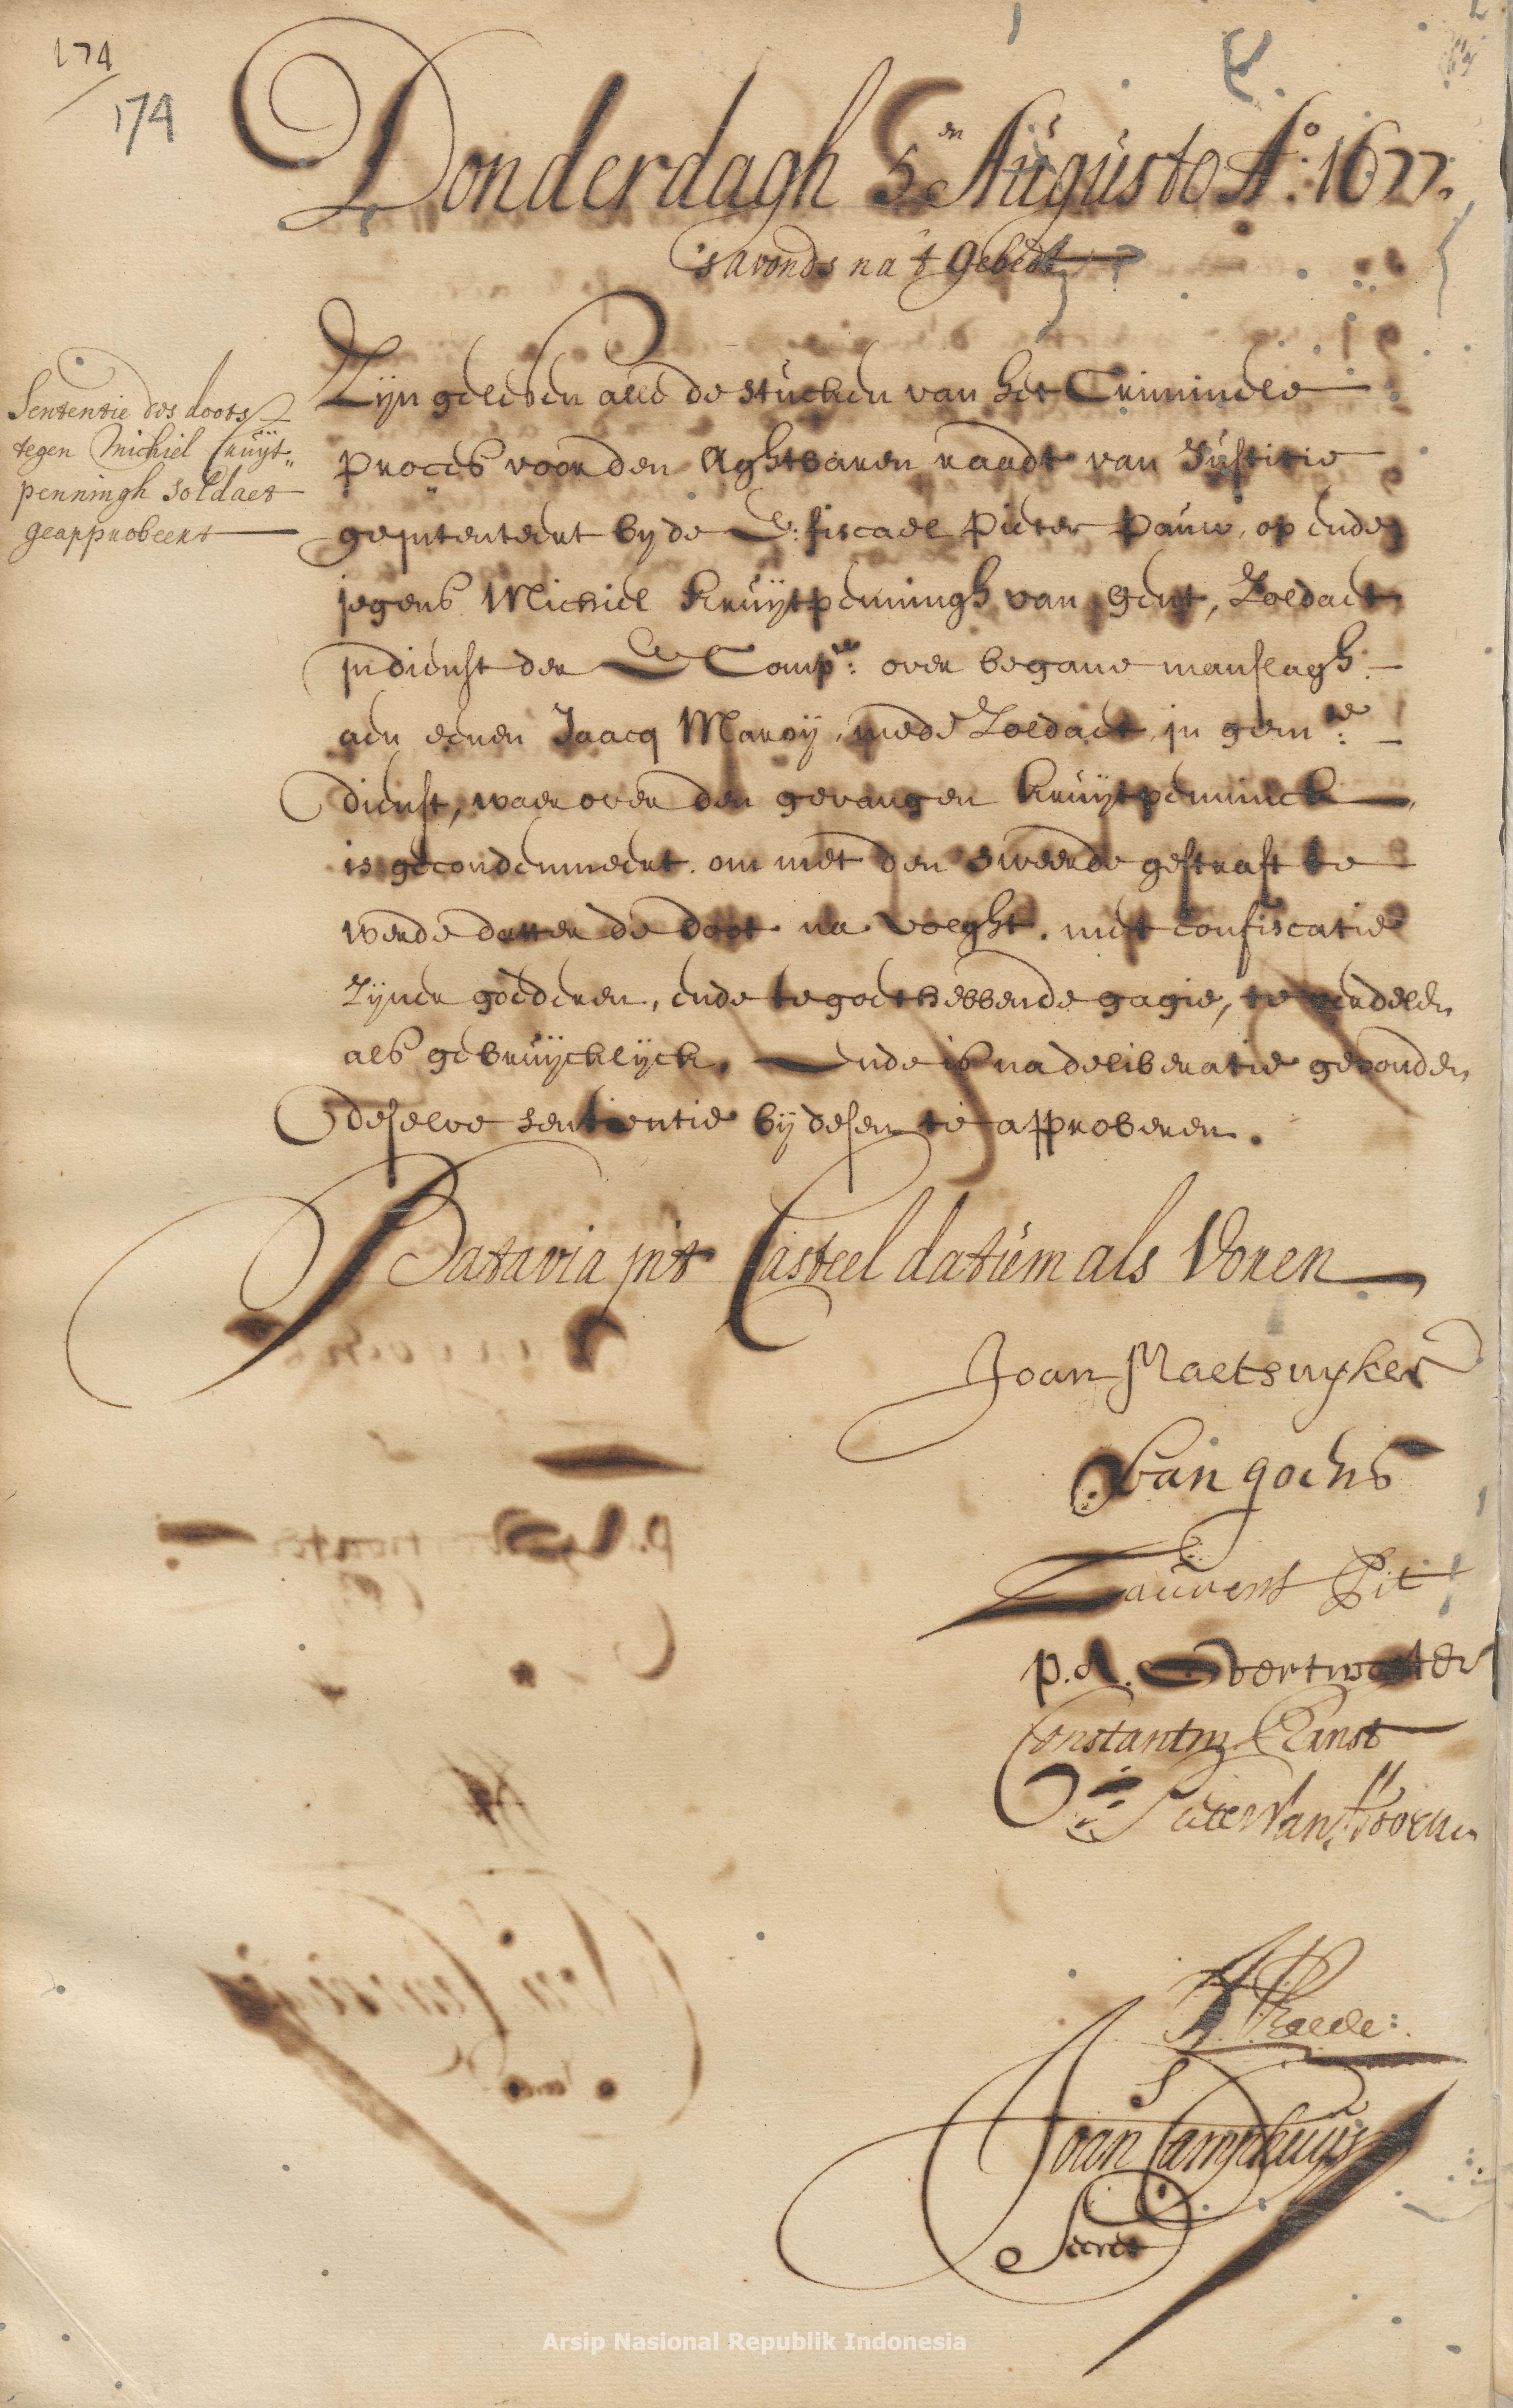 174
174
Donderdagh 5en Augusto Ao: 1677.
's avonds na 't gebedt
Sententie des doots
tegen Michiel Cruijt„
penningh soldaet
geapprobeert
Zijn gelesen alle de stucken van het Crimineele
proces voor den Aghtbaren raadt van Justitie
geintenteert by de E: fiscael Pieter Pauw, op ende
jegens Michiel Kruijtpenningh van Gent, Zoldaet
in dienst der E Compe: over begane manslagh
aen eenen Jaacq Maroij, mede Zoldaet in gemte:
dienst, waer over den gevangen Kruijtpenninck
is gecondemneert om met den sweerde gestraft te
werde datter de doot na volght. met confiscatie
Zijner goederen, ende te goet hebbende gagie, te verdelen
als gebruijcklijck, Ende is na deliberatie gevonden
deselve sententie bij desen te approberen.
Batavia int Casteel datum als Voren
Joan Maetsuyker
Van Goens
Laurens Pit
p. A. Overtwater
Constantin Ranst
Pieter Van Hoorn
Rheede:
Joan Camphuijs
Secret
Arsip Nasional Republik Indonesia